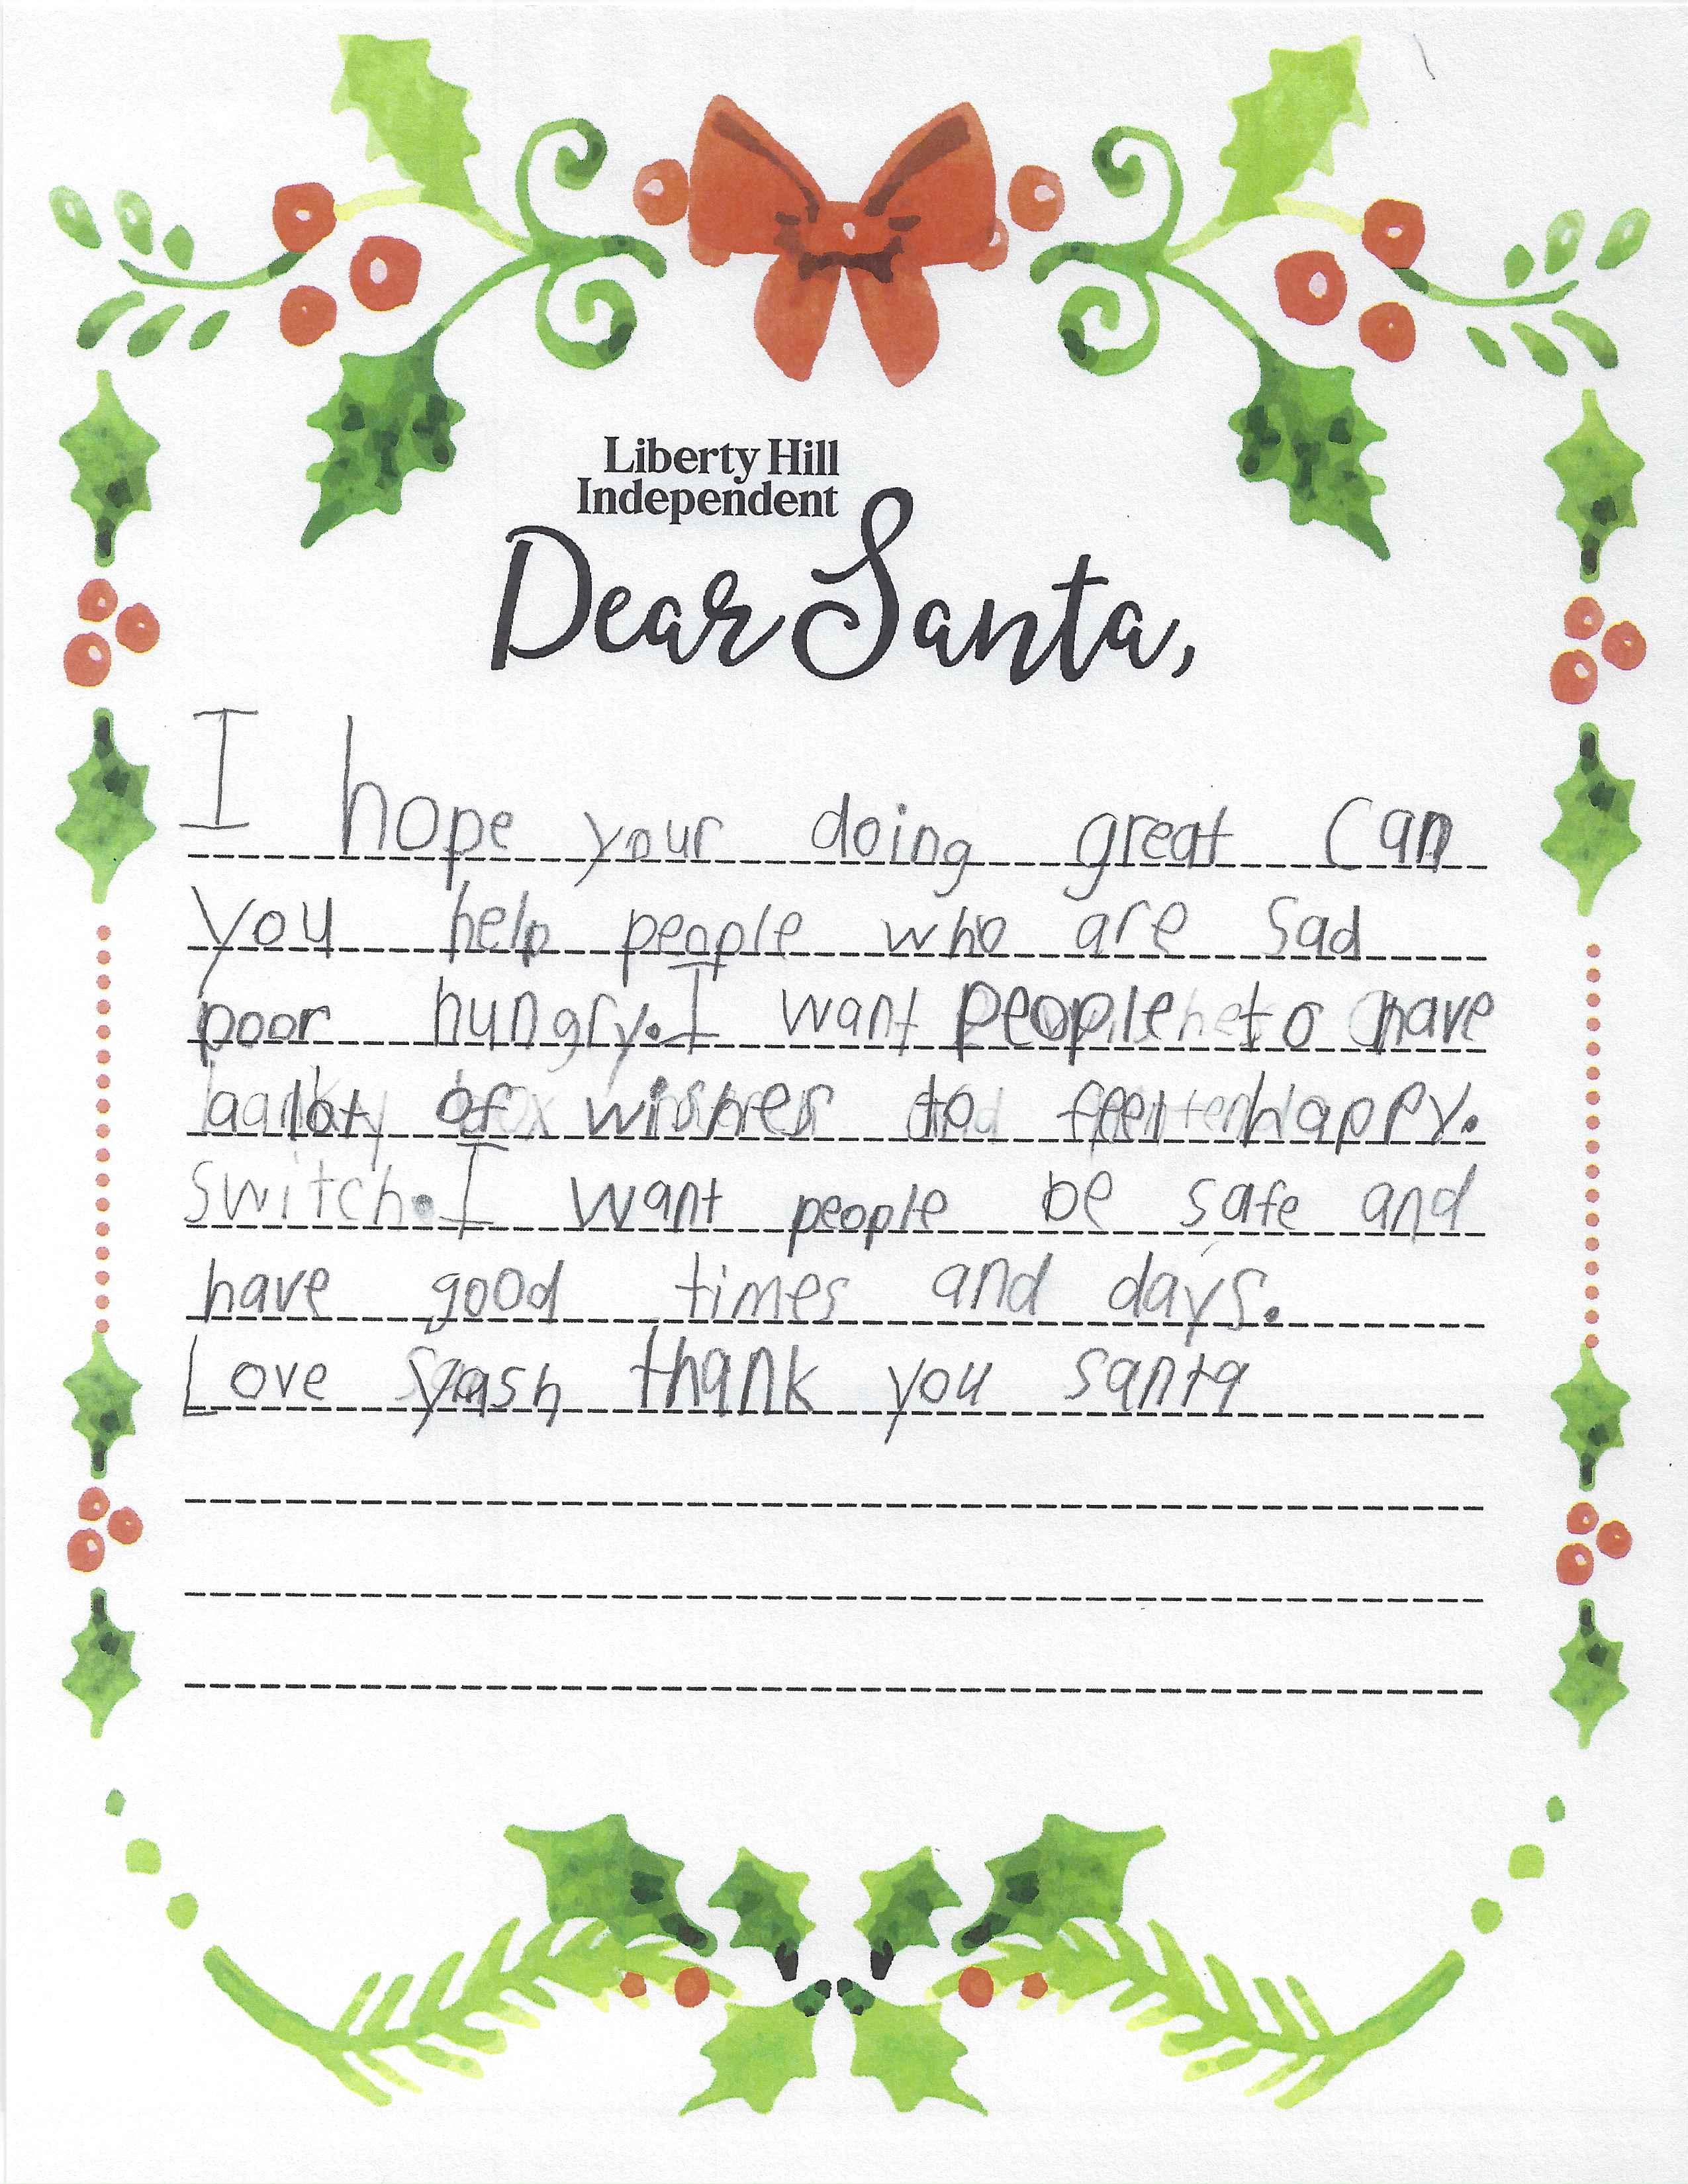 Liberty Hill
Independent
Dear Santa,
I hope your doing great can
you help people who are sad
poor hungry. I want people to have
a lot of wishes to feel happy.
switch. I want people be safe and
have good times and days.
Love yash thank you santa